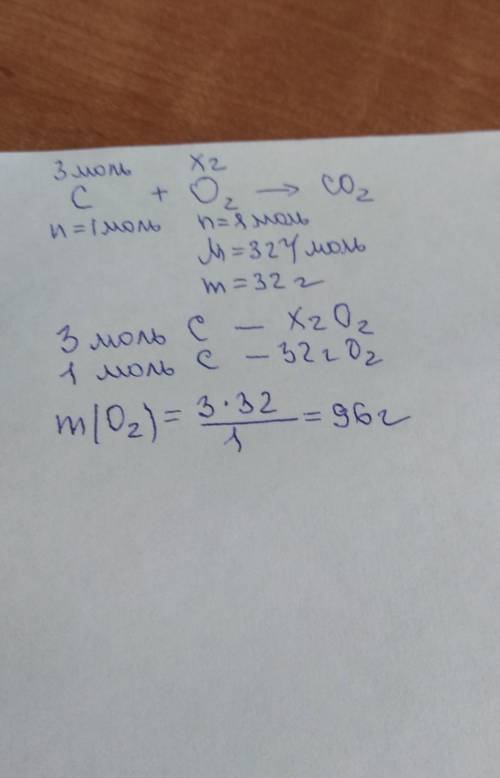 3 моль x г
C + O₂ → CO₂
n=1 моль n=1 моль
M=32 г/моль
m=32 г
3 моль C — x г O₂
1 моль C — 32 г O₂
m(O₂) = 3·32 / 1 = 96 г